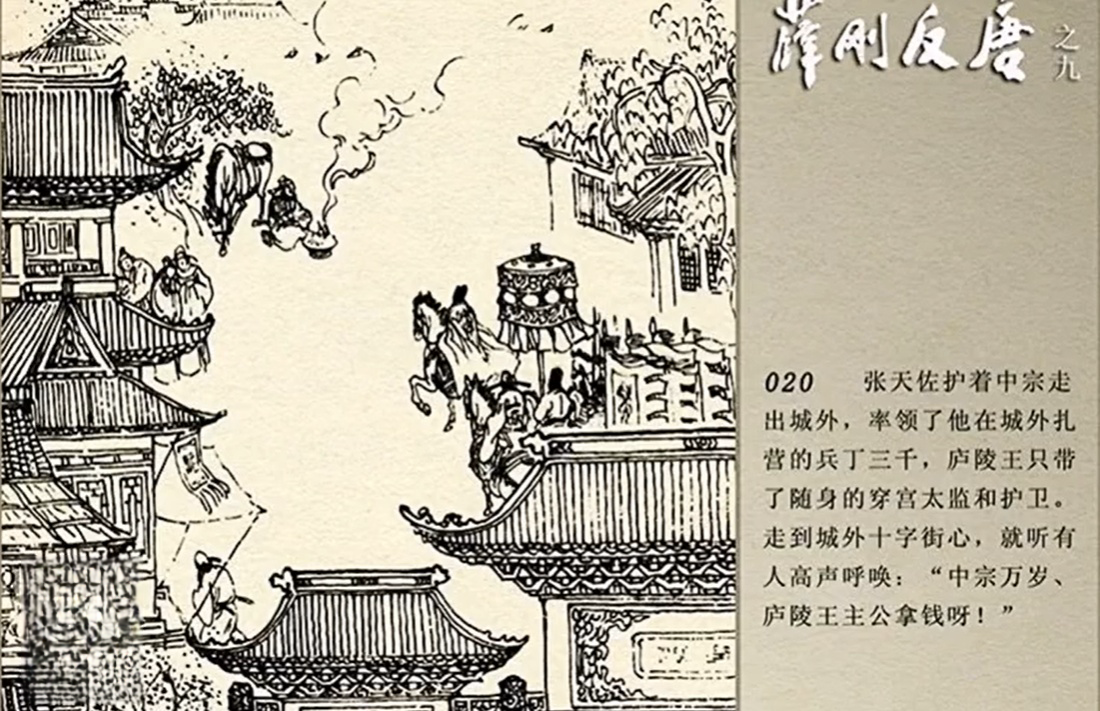 薛刚反唐
之九
020 张天佐护着中宗走
出城外，率领了他在城外扎
营的兵丁三千，庐陵王只带
了随身的穿宫太监和护卫。
走到城外十字街心，就听有
人高声呼唤：“中宗万岁、
庐陵王主公拿钱呀！”